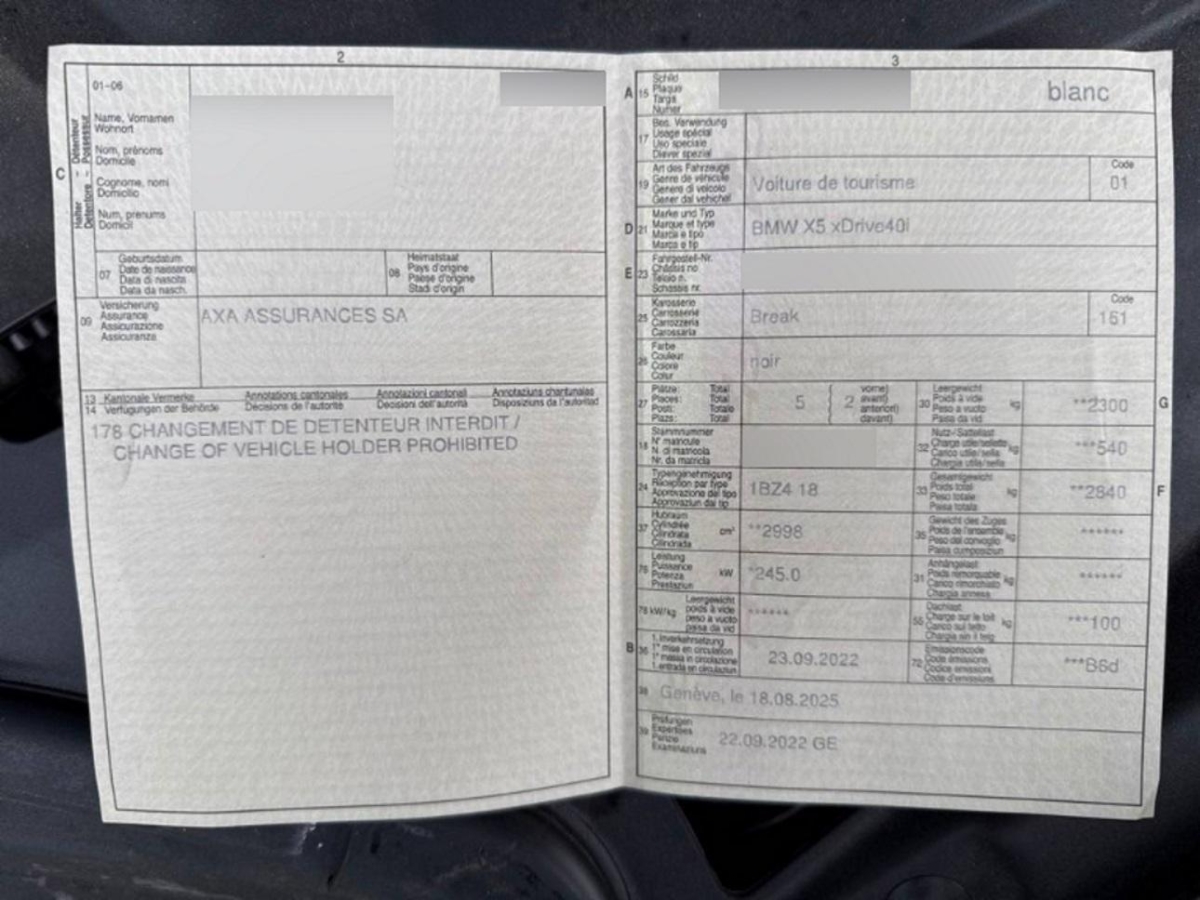 2
01-06
C
Halter - Détenteur
Detentore - Possessur
Name, Vornamen
Wohnort
Nom, prénoms
Domicile
Cognome, nomi
Domicilio
Num, prenums
Domicil
07
Geburtsdatum
Date de naissance
Data di nascita
Data da nasch.
08
Heimatstaat
Pays d'origine
Paese d'origine
Stadi d'origin
09
Versicherung
Assurance
Assicurazione
Assicuranza
AXA ASSURANCES SA
13 Kantonale Vermerke Annotations cantonales Annotazioni cantonali Annotaziuns chantunalas
14 Verfügungen der Behörde Décisions de l'autorité Decisioni dell'autorità Disposiziuns da l'autoritad
178 CHANGEMENT DE DETENTEUR INTERDIT /
CHANGE OF VEHICLE HOLDER PROHIBITED
3
A 15
Schild
Plaque
Targa
Numer
blanc
17
Bes. Verwendung
Usage spécial
Uso speciale
Diever spezial
19
Art des Fahrzeugs
Genre de véhicule
Genere di veicolo
Gener dal vehichel
Voiture de tourisme
Code
01
D 21
Marke und Typ
Marque et type
Marca e tipo
Marca e tip
BMW X5 xDrive40i
E 23
Fahrgestell-Nr.
Châssis no
Telaio n.
Schassis nr.
25
Karosserie
Carrosserie
Carrozzeria
Carossaria
Break
Code
151
26
Farbe
Couleur
Colore
Colur
noir
27
Plätze: Total
Places: Total
Posti: Totale
Plazs: Total
5 ( 2
vorne)
avant)
anteriori)
davant)
30
Leergewicht
Poids à vide
Peso a vuoto
Paisa da vid
kg
**2300
G
18
Stammnummer
N° matricule
N. di matricola
Nr. da matricla
32
Nutz-/Sattellast
Charge utile/sellette
Carico utile/sella
Chargia utila/sella
kg
***540
24
Typengenehmigung
Réception par type
Approvazione del tipo
Approvaziun dal tip
1BZ4 18
33
Gesamtgewicht
Poids total
Peso totale
Paisa totala
kg
**2840
F
37
Hubraum
Cylindrée
Cilindrata
Cilindrada
cm³
**2998
35
Gewicht des Zuges
Poids de l'ensemble
Peso del convoglio
Paisa cumposiziun
******
76
Leistung
Puissance
Potenza
Prestaziun
kW
*245.0
31
Anhängelast
Poids remorquable
Carico rimorchiato
Chargia annexa
kg
******
78 kW/kg
Leergewicht
poids à vide
peso a vuoto
paisa da vid
******
55
Dachlast
Charge sur le toit
Carico sul tetto
Chargia sin il tetg
kg
***100
B 36
1. Inverkehrsetzung
1re mise en circulation
1a messa in circolazione
1. entrada en circulaziun
23.09.2022
72
Emissionscode
Code émissions
Codice emissioni
Code d'emissiuns
***B6d
38 Genève, le 18.08.2025
39
Prüfungen
Expertises
Perizie
Examinaziuns
22.09.2022 GE